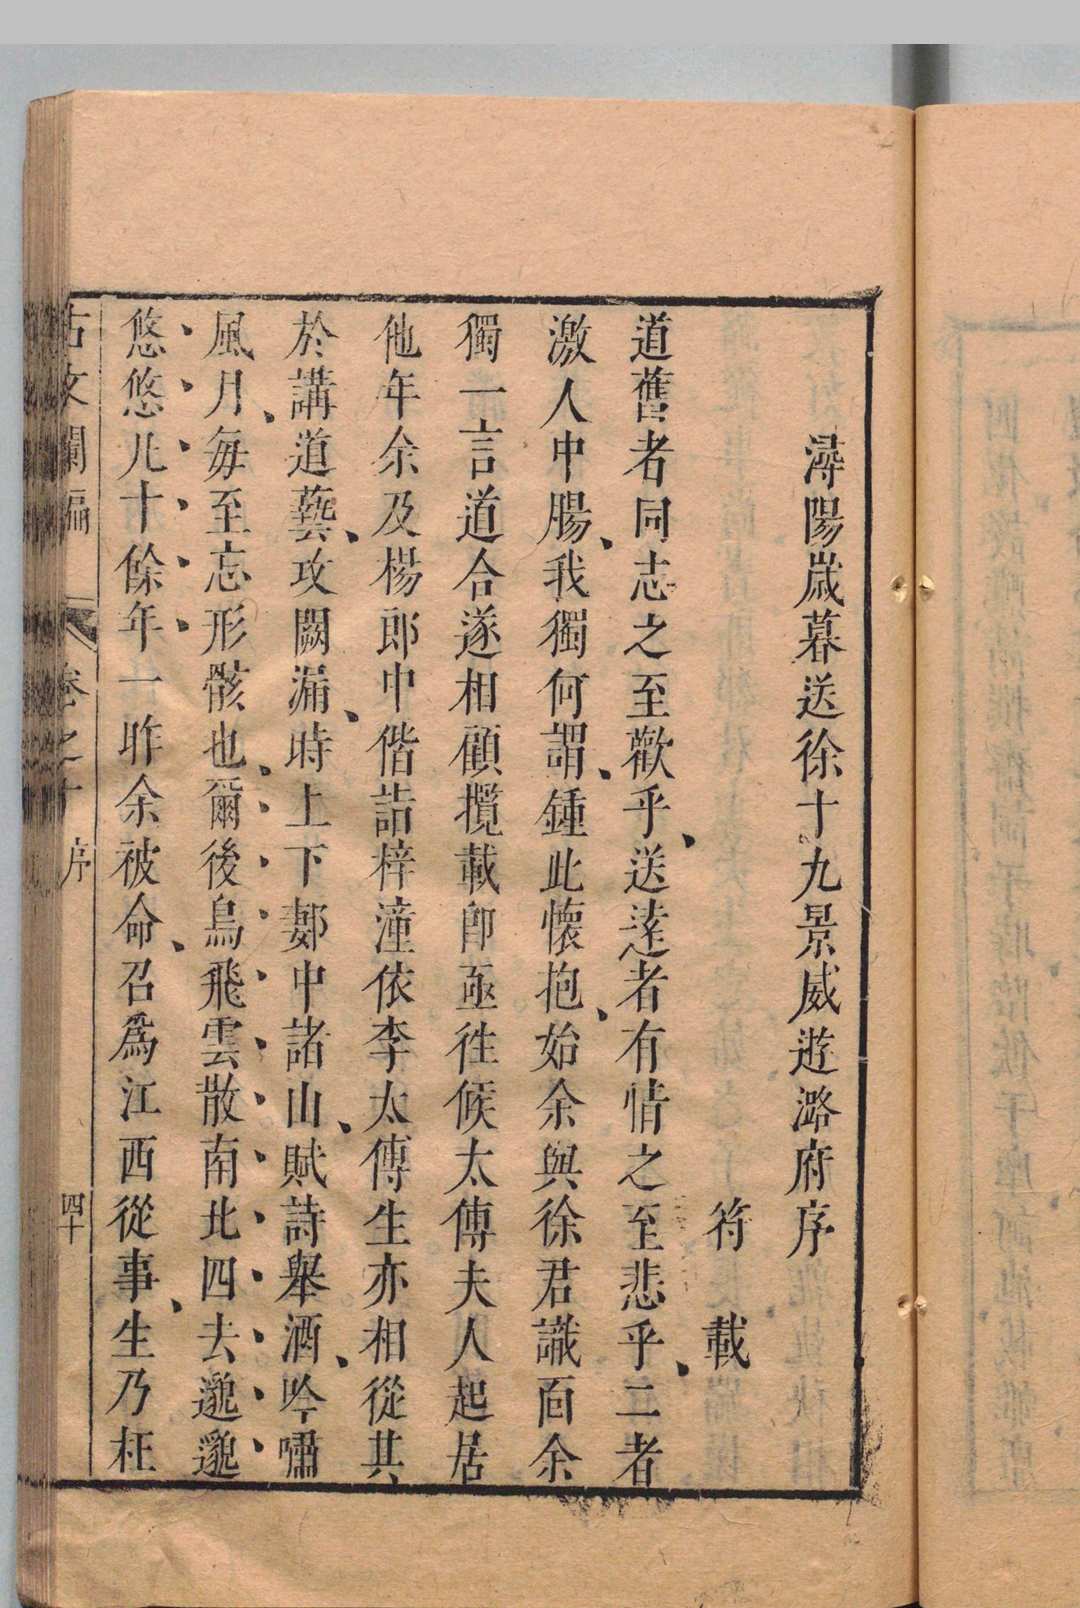 潯陽歲暮送徐十九景威遊潞府序
符載
道舊者同志之至歡乎送逹者有情之至悲乎二者
激人中腸我獨何謂鍾此懷抱始余與徐君識靣余
獨一言道合遂相顧攬載卽亟徃候太傅夫人起居
他年余及楊郎中偕詣梓潼依李太傅生亦相從其
於講道藝攻闕漏時上下鄸中諸山賦詩舉酒吟嘯
風月每至忘形骸也爾後鳥飛雲散南北四去邈邈
悠悠凡十餘年一昨余被命召爲江西從事生乃枉
古文瀾編 卷之十 序 四十